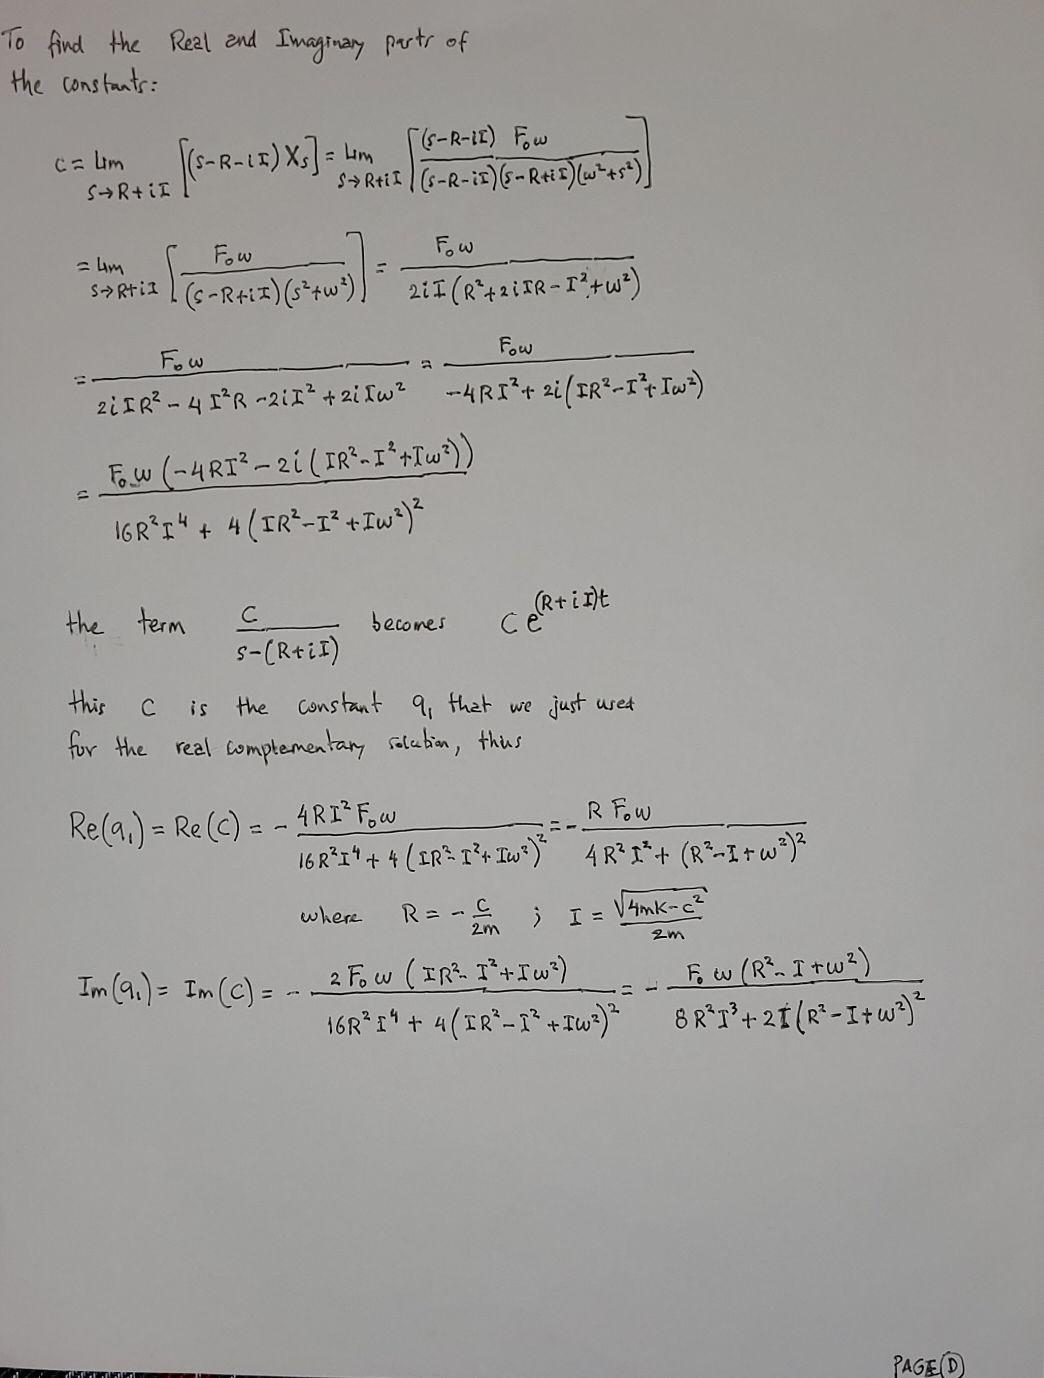 To find the Real and Imaginary parts of
the constants:
C = lim_{S→R+iI} [(S-R-iI) X_s] = lim_{S→R+iI} [((S-R-iI) F₀ω) / ((S-R-iI)(S-R+iI)(ω²+s²))]
= lim_{S→R+iI} [F₀ω / ((S-R+iI)(s²+ω²))] = F₀ω / (2iI(R²+2iIR-I²+ω²))
= F₀ω / (2iIR² - 4I²R - 2iI² + 2iIω²) = F₀ω / (-4RI² + 2i(IR²-I²+Iω²))
= F₀ω(-4RI² - 2i(IR²-I²+Iω²)) / (16R²I⁴ + 4(IR²-I²+Iω²)²)
the term C / (S-(R+iI)) becomes C e^{(R+iI)t}
this C is the constant q₁ that we just used
for the real complementary solution, thus
Re(q₁) = Re(C) = - 4RI²F₀ω / (16R²I⁴ + 4(IR²-I²+Iω²)²) = - R F₀ω / (4R²I² + (R²-I+ω²)²)
where R = - c/2m ; I = √(4mk-c²) / 2m
Im(q₁) = Im(C) = - 2F₀ω(IR²-I²+Iω²) / (16R²I⁴ + 4(IR²-I²+Iω²)²) = - F₀ω(R²-I+ω²) / (8R²I³ + 2I(R²-I+ω²)²)
PAGE D